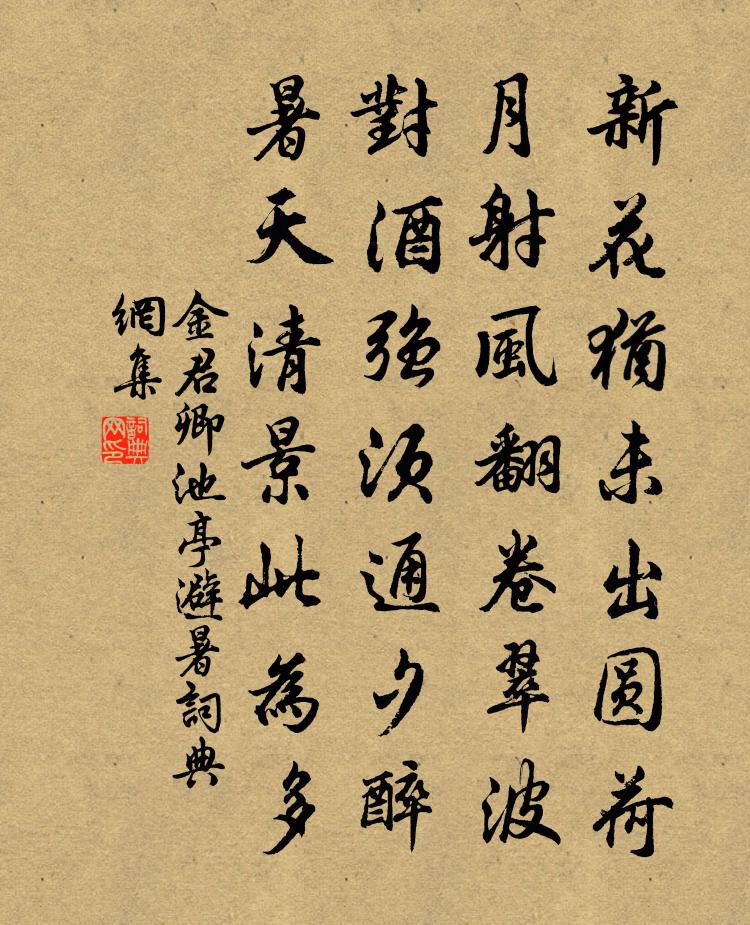 新花猶未出圆荷
月射風翻卷翠波
對酒強須通夕醉
暑天清景此為多
金君卿池亭避暑詞典
網集
詞典
网印